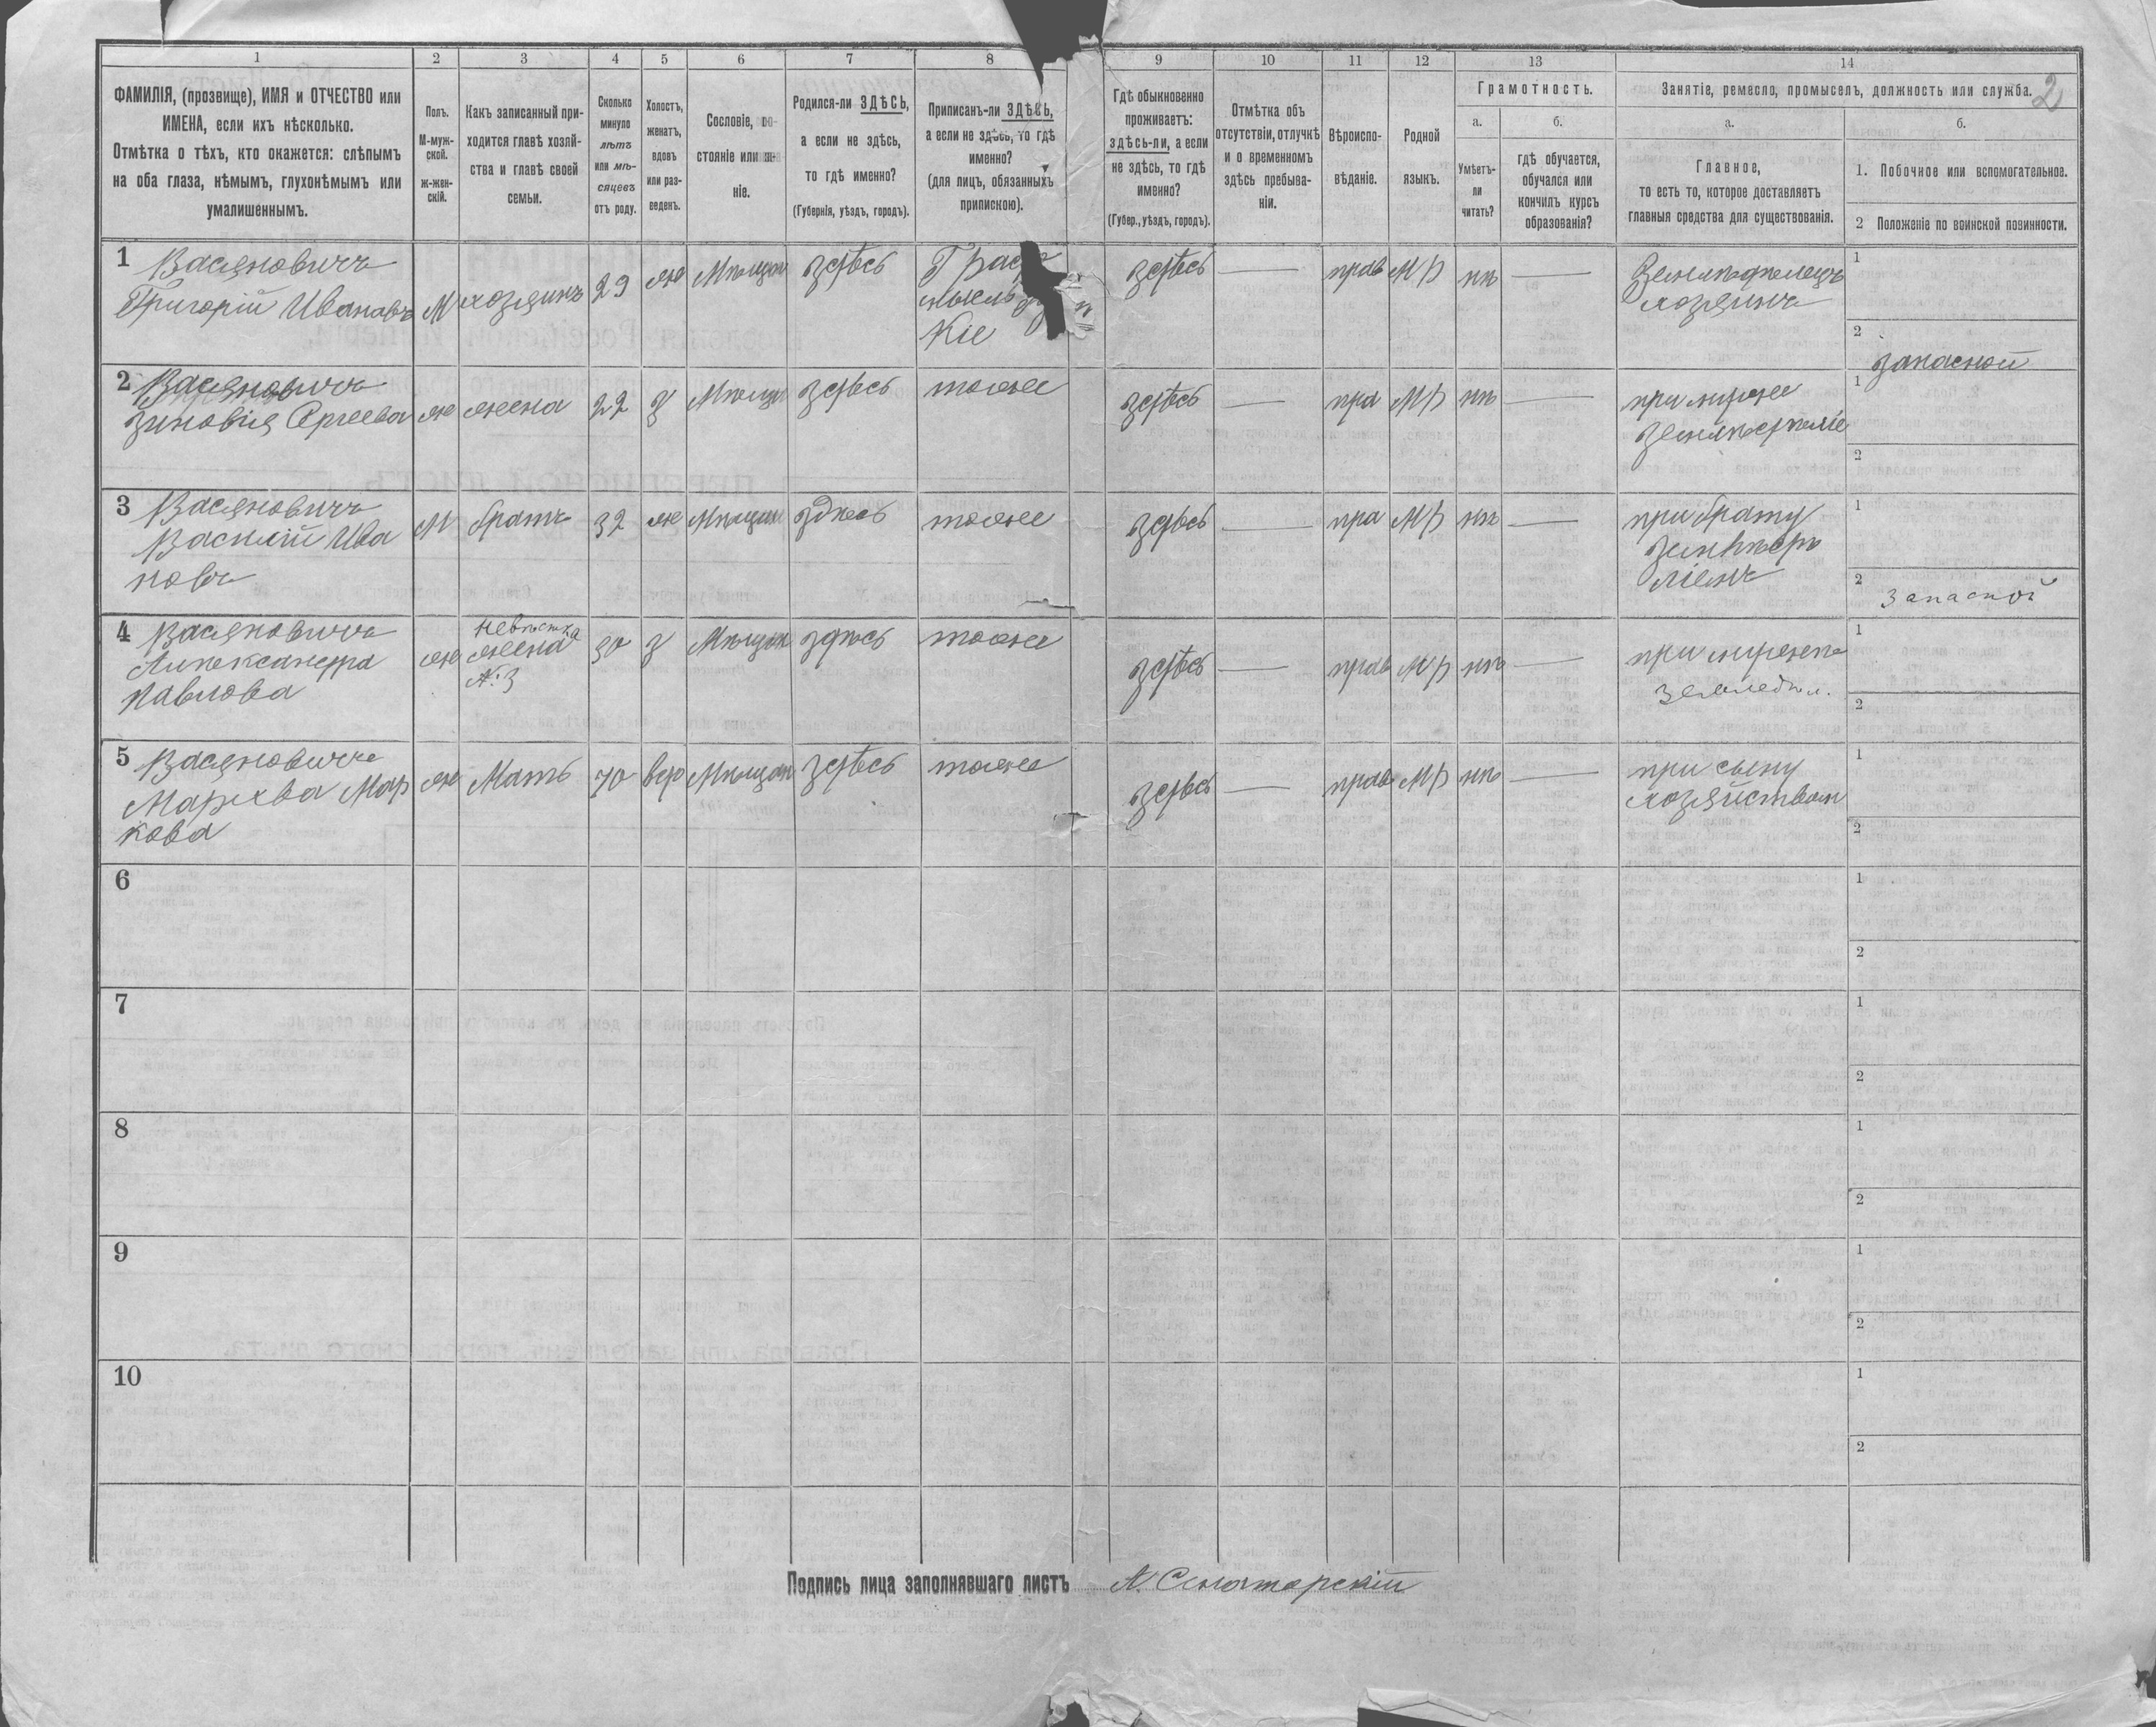 1 2 3 4 5 6 7 8 9 10 11 12 13 14
ФАМИЛІЯ, (прозвище), ИМЯ и ОТЧЕСТВО или
ИМЕНА, если ихъ нѣсколько.
Отмѣтка о тѣхъ, кто окажется: слѣпымъ
на оба глаза, нѣмымъ, глухонѣмымъ или
умалишеннымъ.
Полъ.
М-муж-
ской.
Ж-жен-
скій.
Какъ записанный при-
ходится главѣ хозяй-
ства и главѣ своей
семьи.
Сколько
минуло
лѣтъ
или мѣ-
сяцевъ
отъ роду.
Холостъ,
женатъ,
вдовъ
или раз-
веденъ.
Сословіе, со-
стояніе или
ніе.
Родился-ли ЗДѢСЬ,
а если не здѣсь,
то гдѣ именно?
(Губернія, уѣздъ, городъ).
Приписанъ-ли ЗДѢСЬ,
а если не здѣсь, то гдѣ
именно?
(для лицъ, обязанныхъ
припискою).
Гдѣ обыкновенно
проживаетъ:
здѣсь-ли, а если
не здѣсь, то гдѣ
именно?
(Губер., уѣздъ, городъ).
Отмѣтка объ
отсутствіи, отлучкѣ
и о временномъ
здѣсь пребыва-
ніи.
Вѣроиспо-
вѣданіе.
Родной
языкъ.
Грамотность.
а.
Умѣетъ-
ли
читать?
б.
гдѣ обучается,
обучался или
кончилъ курсъ
образованія?
Занятіе, ремесло, промыселъ, должность или служба.
2
а.
Главное,
то есть то, которое доставляетъ
главныя средства для существованія.
б.
1. Побочное или вспомогательное.
2 Положеніе по воинской повинности.
1 Васяновичъ
Григорій Ивановъ
М
хозяинъ
29
же
Мѣщан
здѣсь
Кіе
здѣсь
прав
МР
нѣ
Земледѣлецъ
хозяинъ
1
2
запасной
2 Васяновичъ
Зиновія Сргеева
же
жена
22
З
Мѣщан
здѣсь
тоже
здѣсь
пра
МР
нѣ
при мужѣ
земледѣліе
1
2
3 Васяновичъ
Василій Ива
новъ
М
братъ
32
же
Мѣщан
здѣсь
тоже
здѣсь
пра
МР
нѣ
при брату
1
2
Запасной
4 Васяновичъ
Александра
Павлова
же
невѣстка
жена
№ 3
30
З
Мѣщан
здѣсь
тоже
здѣсь
прав
МР
нѣ
при мужѣ
земледѣл.
1
2
5 Васяновичъ
Марфва Мар
кова
же
Мать
70
вдо
Мѣщан
здѣсь
тоже
здѣсь
прав
МР
нѣ
при сыну
хозяйством
1
2
6
1
2
7
1
2
8
1
2
9
1
2
10
1
2
Подпись лица заполнявшаго листъ